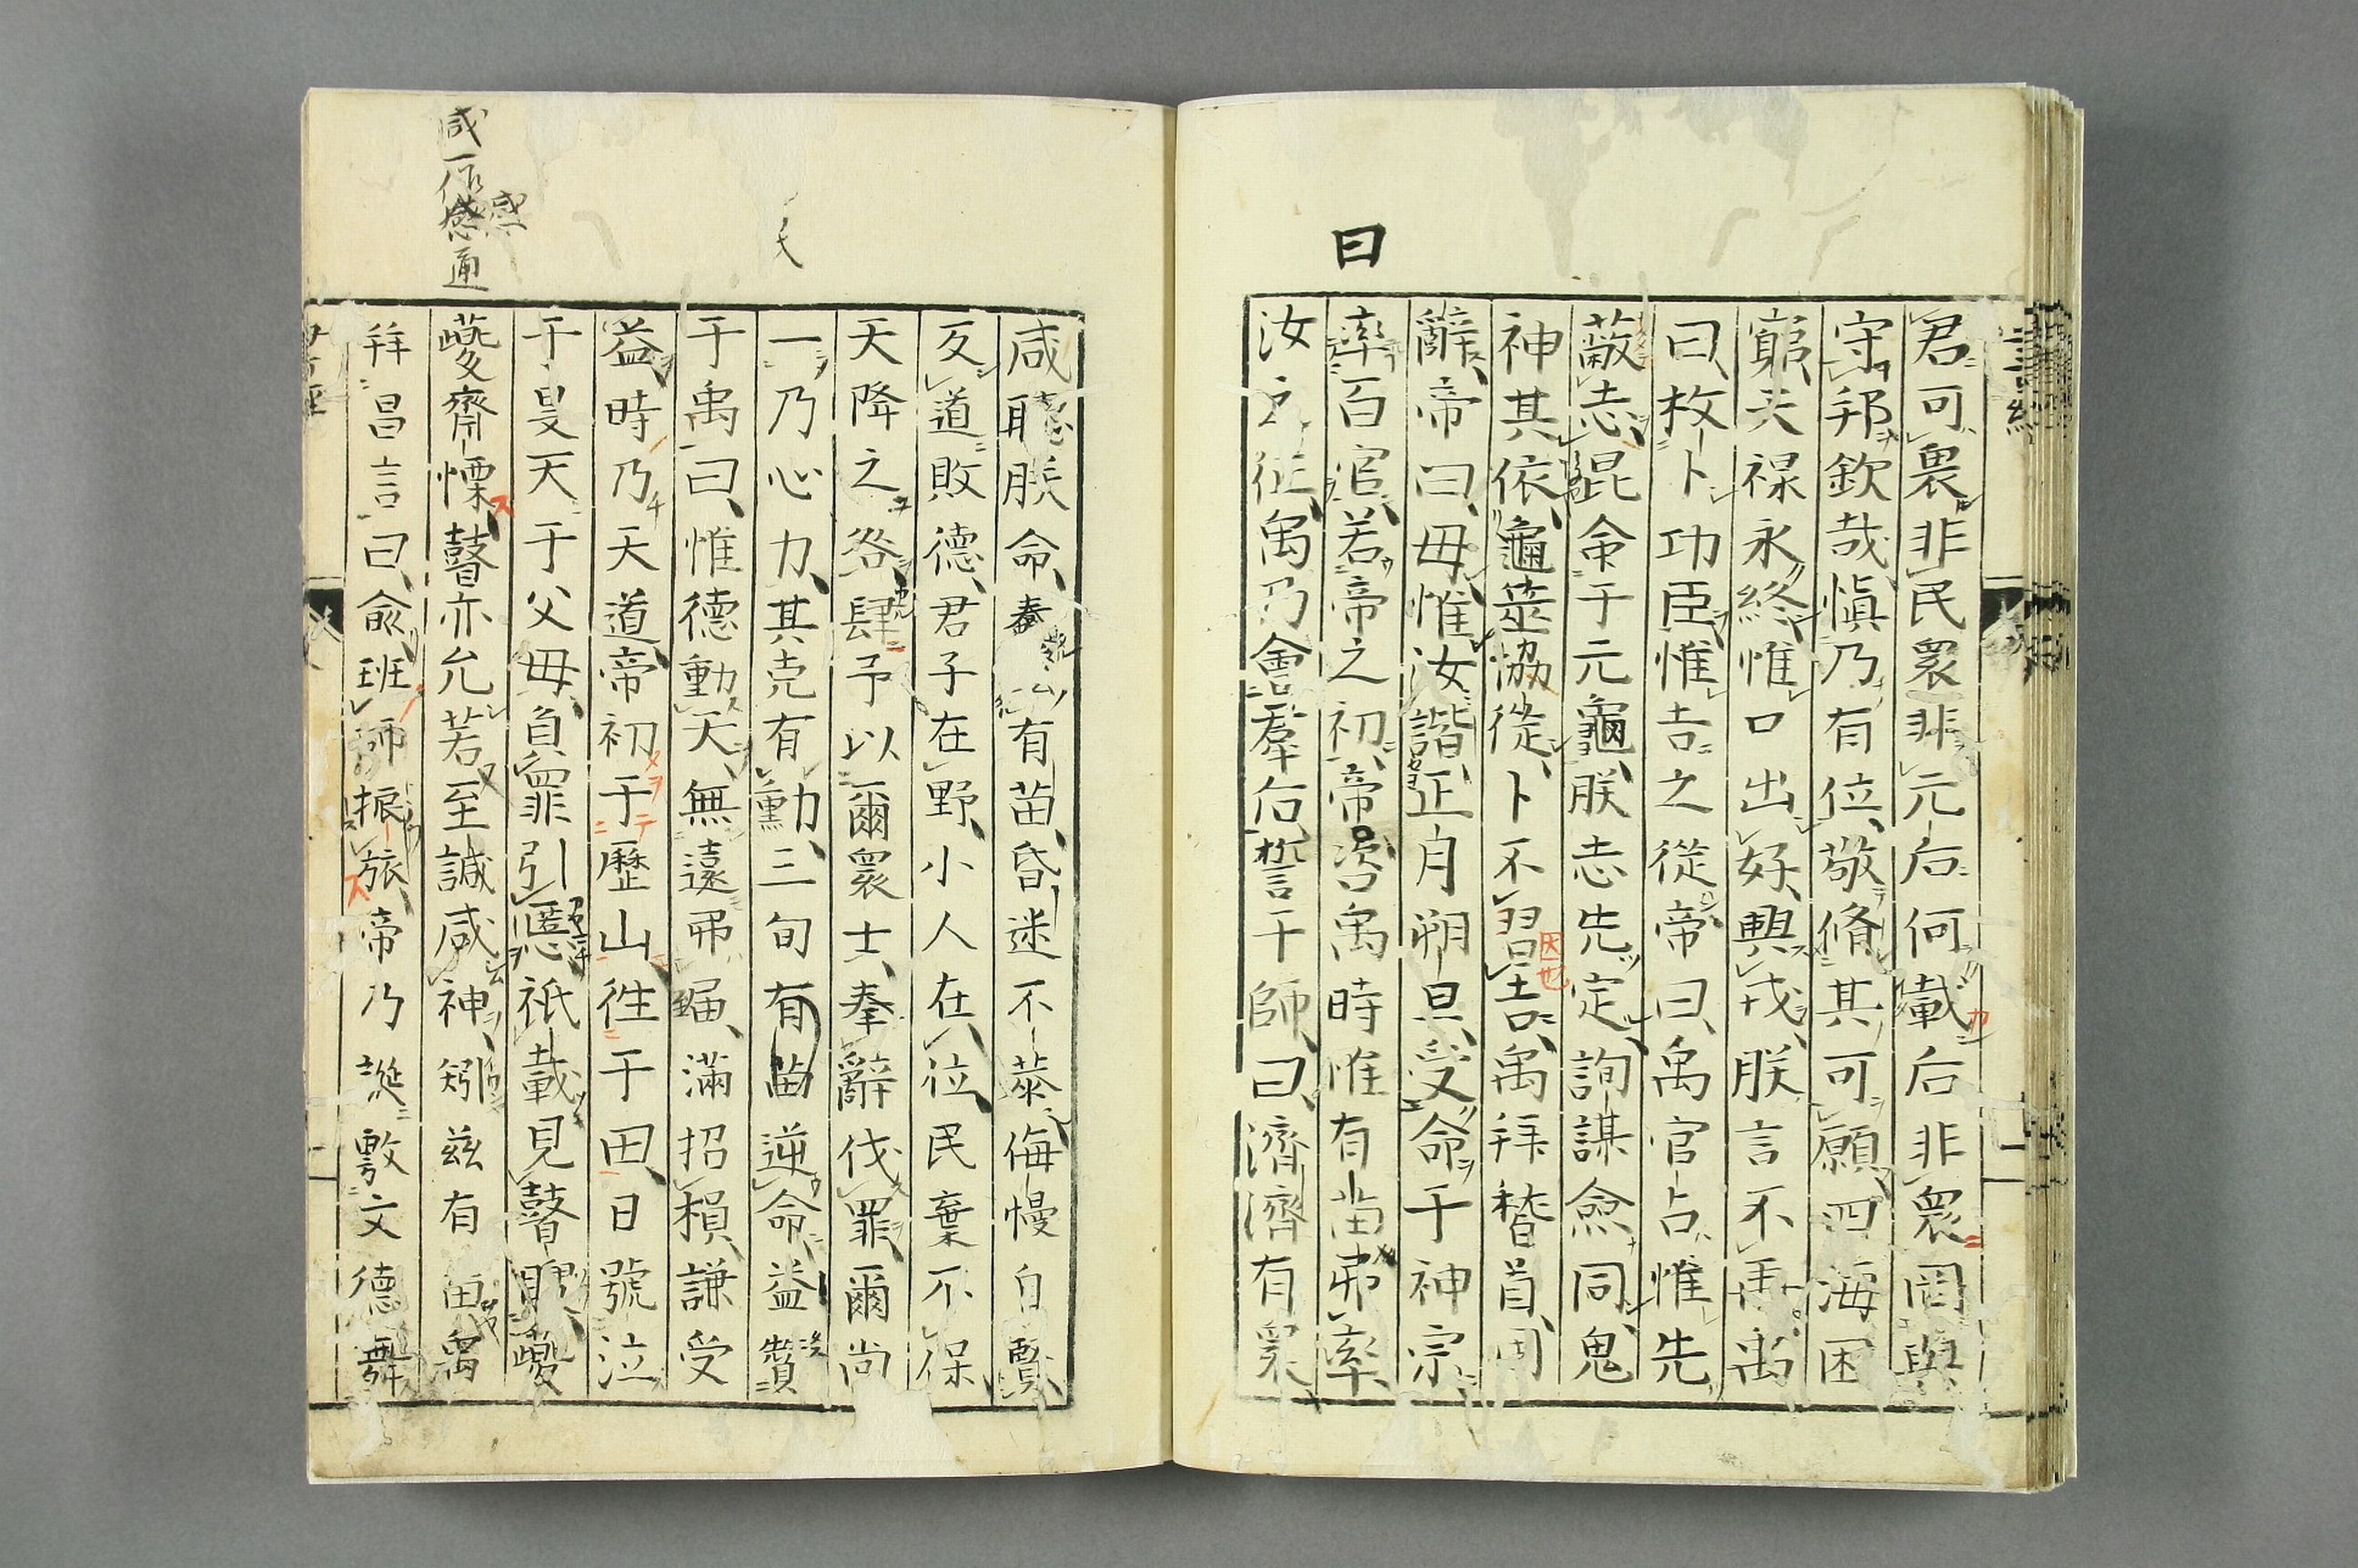 君可畏非民眾非元后何戴后非眾罔與
守邦欽哉慎乃有位敬脩其可願四海困
窮天祿永終惟口出好興戎朕言不再禹
曰枚卜功臣惟吉之從帝曰禹官占惟先
蔽志昆命于元龜朕志先定詢謀僉同鬼
神其依龜筮協從卜不習吉禹拜稽首固
辭帝曰毋惟汝諧正月朔旦受命于神宗
率百官若帝之初帝咨禹時惟有苗弗率
曰
汝徂征禹乃會羣后誓于師曰濟濟有眾
咸聽朕命蠢玆有苗昏迷不恭侮慢自賢
反道敗德君子在野小人在位民棄不保
天降之咎肆予以爾眾士奉辭伐罪爾尚
一乃心力其克有勳三旬有苗逆命益贊
于禹曰惟德動天無遠弗屆滿招損謙受
益時乃天道帝初于歷山往于田日號泣
于旻天于父母負罪引慝祗載見瞽瞍夔
夔齊慄瞽亦允若至誠咸神矧茲有苗禹
咸一作感通
感
拜昌言曰俞班師振旅帝乃誕敷文德舞
書經